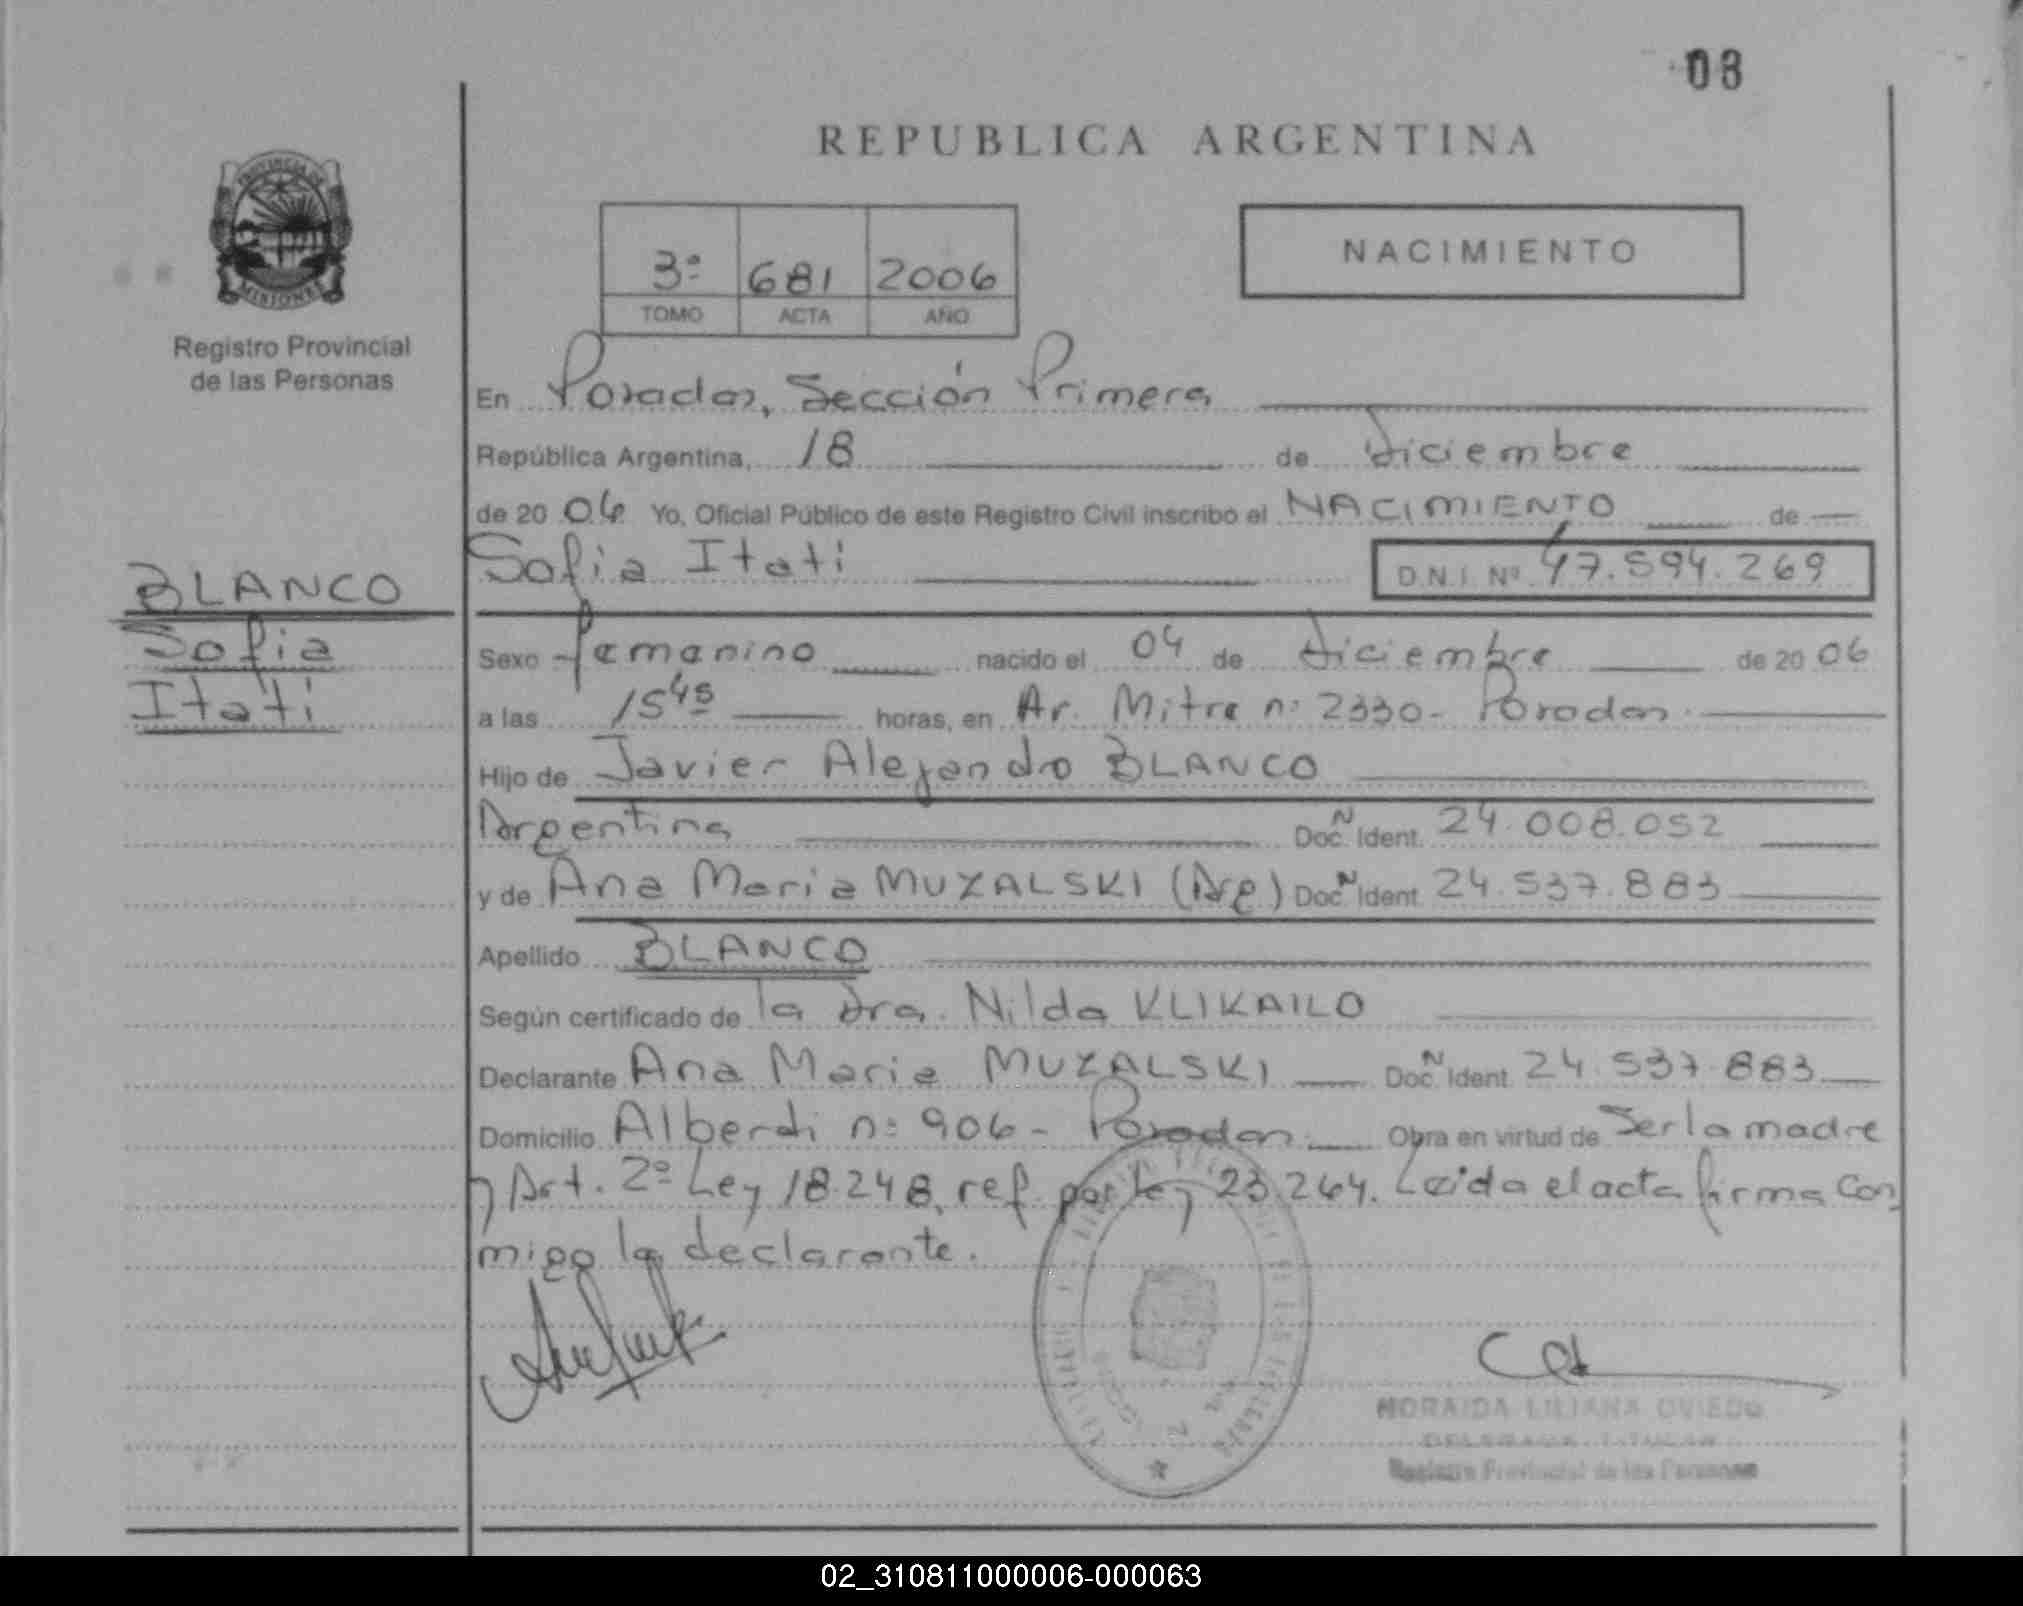 08
REPUBLICA ARGENTINA
PROVINCIA DE
MISIONES
Registro Provincial
de las Personas
3º 681 2006
TOMO ACTA AÑO
NACIMIENTO
En Posadas, Sección Primera
República Argentina, 18 de diciembre
de 20 06 Yo, Oficial Público de este Registro Civil inscribo el NACIMIENTO de
Sofia Itati D.N.I. Nº 47.594.269
BLANCO
Sofia
Itati
Sexo femenino nacido el 04 de diciembre de 20 06
a las 15 45 horas, en Av. Mitre nº 2330- Posadas.
Hijo de Javier Alejandro BLANCO
Argentina Doc. N Ident. 24.008.052
y de Ana Maria MUZALSKI (Arg) Doc. N Ident. 24.537.883
Apellido BLANCO
Según certificado de la dra. Nilda KLIKAILO
Declarante Ana Maria MUZALSKI Doc. N Ident. 24.537.883
Domicilio Alberdi nº 906- Posadas. Obra en virtud de Ser la madre
y Art. 2º Ley 18.248, ref. por ley 23.264. Leida el acta firma con
migo la declarante.
NORAIDA LILIANA OVIEDO
DELEGADA TITULAR
Registro Provincial de las Personas
02_310811000006-000063